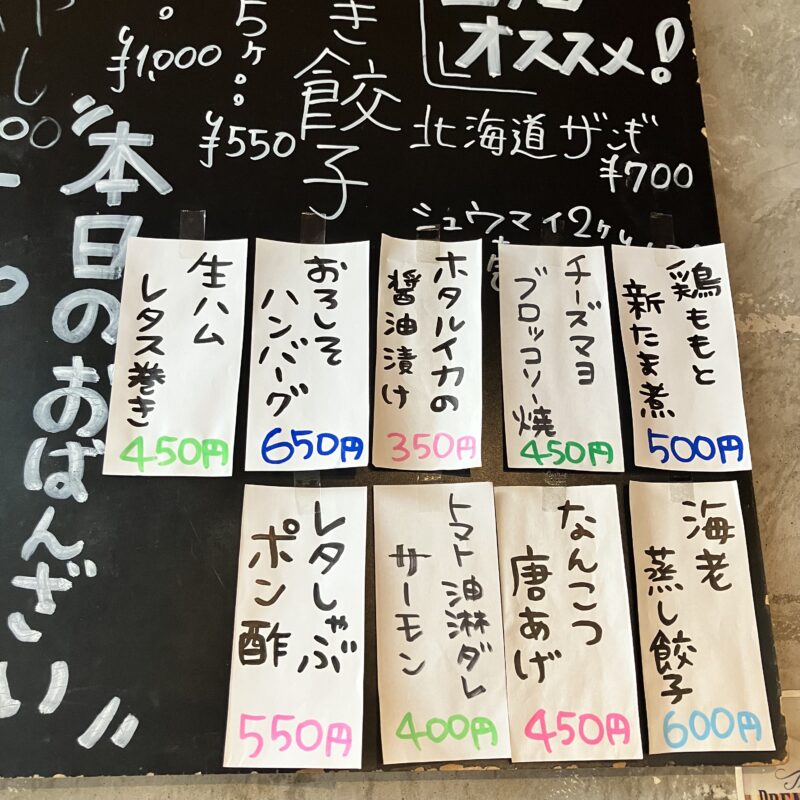 オススメ!
北海道ザンギ
¥700
シュウマイ2ヶ
き餃子
5ヶ
¥550
¥1,000
し
"本日のおばんざい"
鶏ももと
新たま煮
500円
チーズマヨ
ブロッコリー焼
450円
ホタルイカの
醤油漬け
350円
おろしそ
ハンバーグ
650円
生ハム
レタス巻き
450円
海老
蒸し餃子
600円
なんこつ
唐あげ
450円
トマト油淋ダレ
サーモン
400円
レタしゃぶ
ポン酢
550円